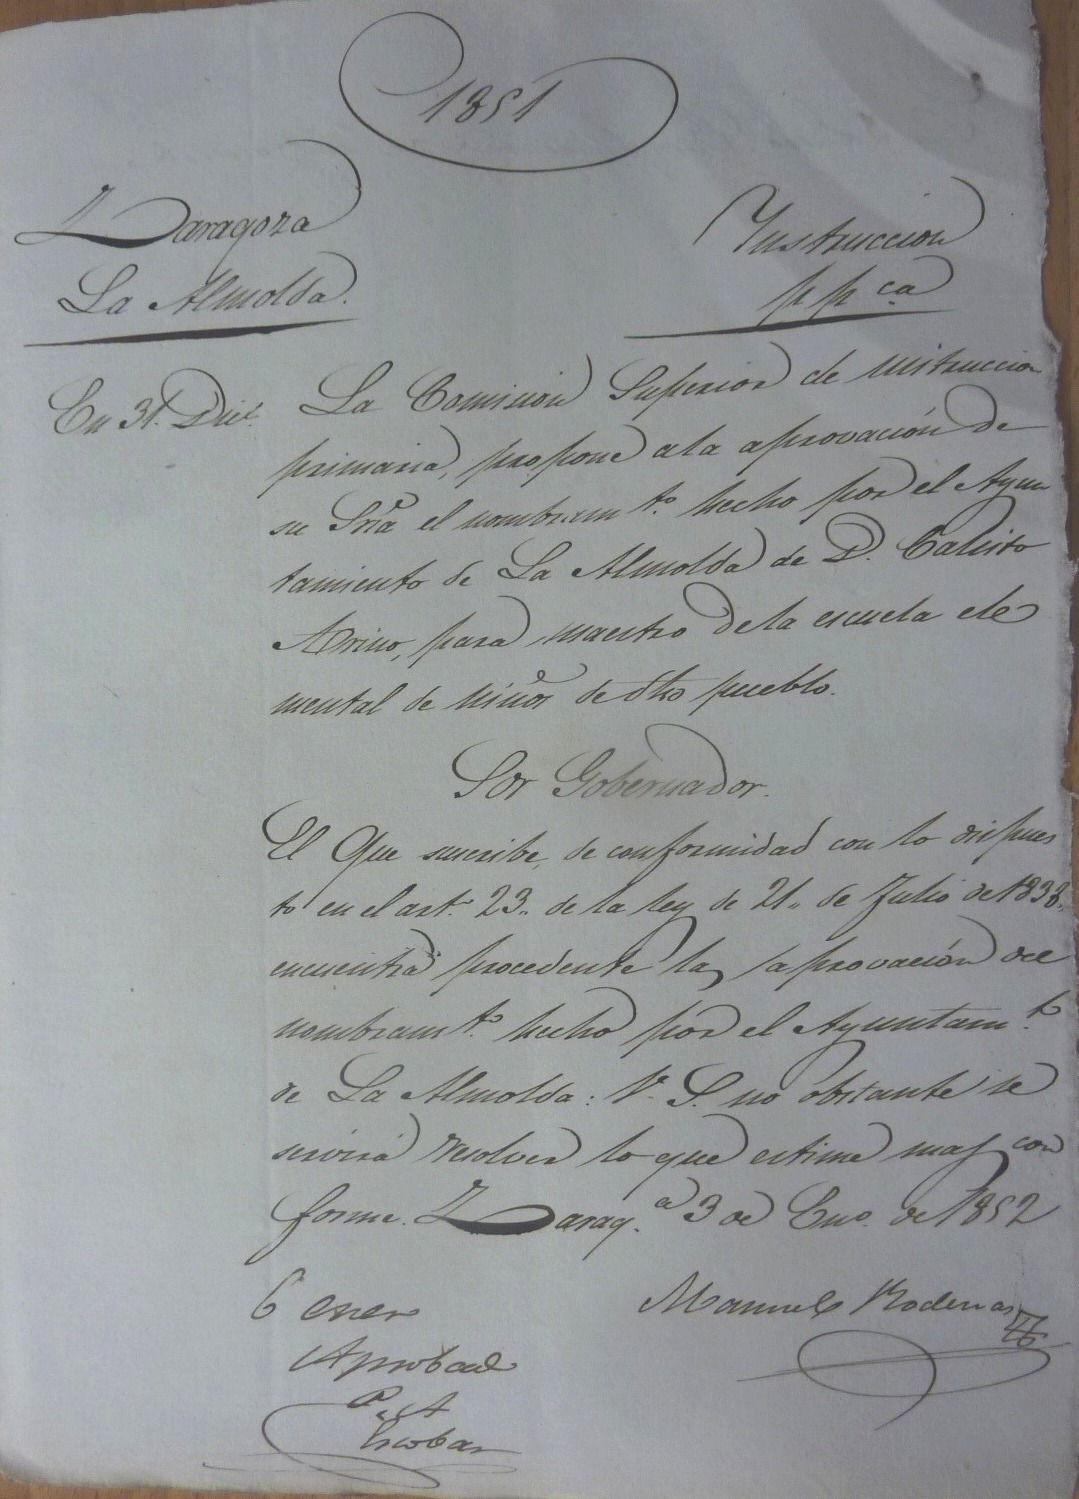 1851
Zaragoza
La Almolda.
Instruccion
pp.ca
En 31. Dice.
La Comision Superior de instruccion
primaria, propone a la aprovación de
su Sría el nombramto. hecho por el Ayun
tamiento de La Almolda de D. Calisto
Abrino, para maestro de la escuela ele
mental de niños de dho pueblo.
Sor Gobernador.
El Que suscribe, de conformidad con lo dispues
to en el art. 23.. de la ley de 21.. de Julio de 1838..
encuentra procedente la aprovación del
nombramto. hecho por el Ayuntamto.
de La Almolda: V. S. no obstante se
servirá resolver lo que estime mas con
forme. Zarag.a 3 de Eno. de 1852
Manuel Rodenas
6 enero
Aprobado
P. A
Escobar